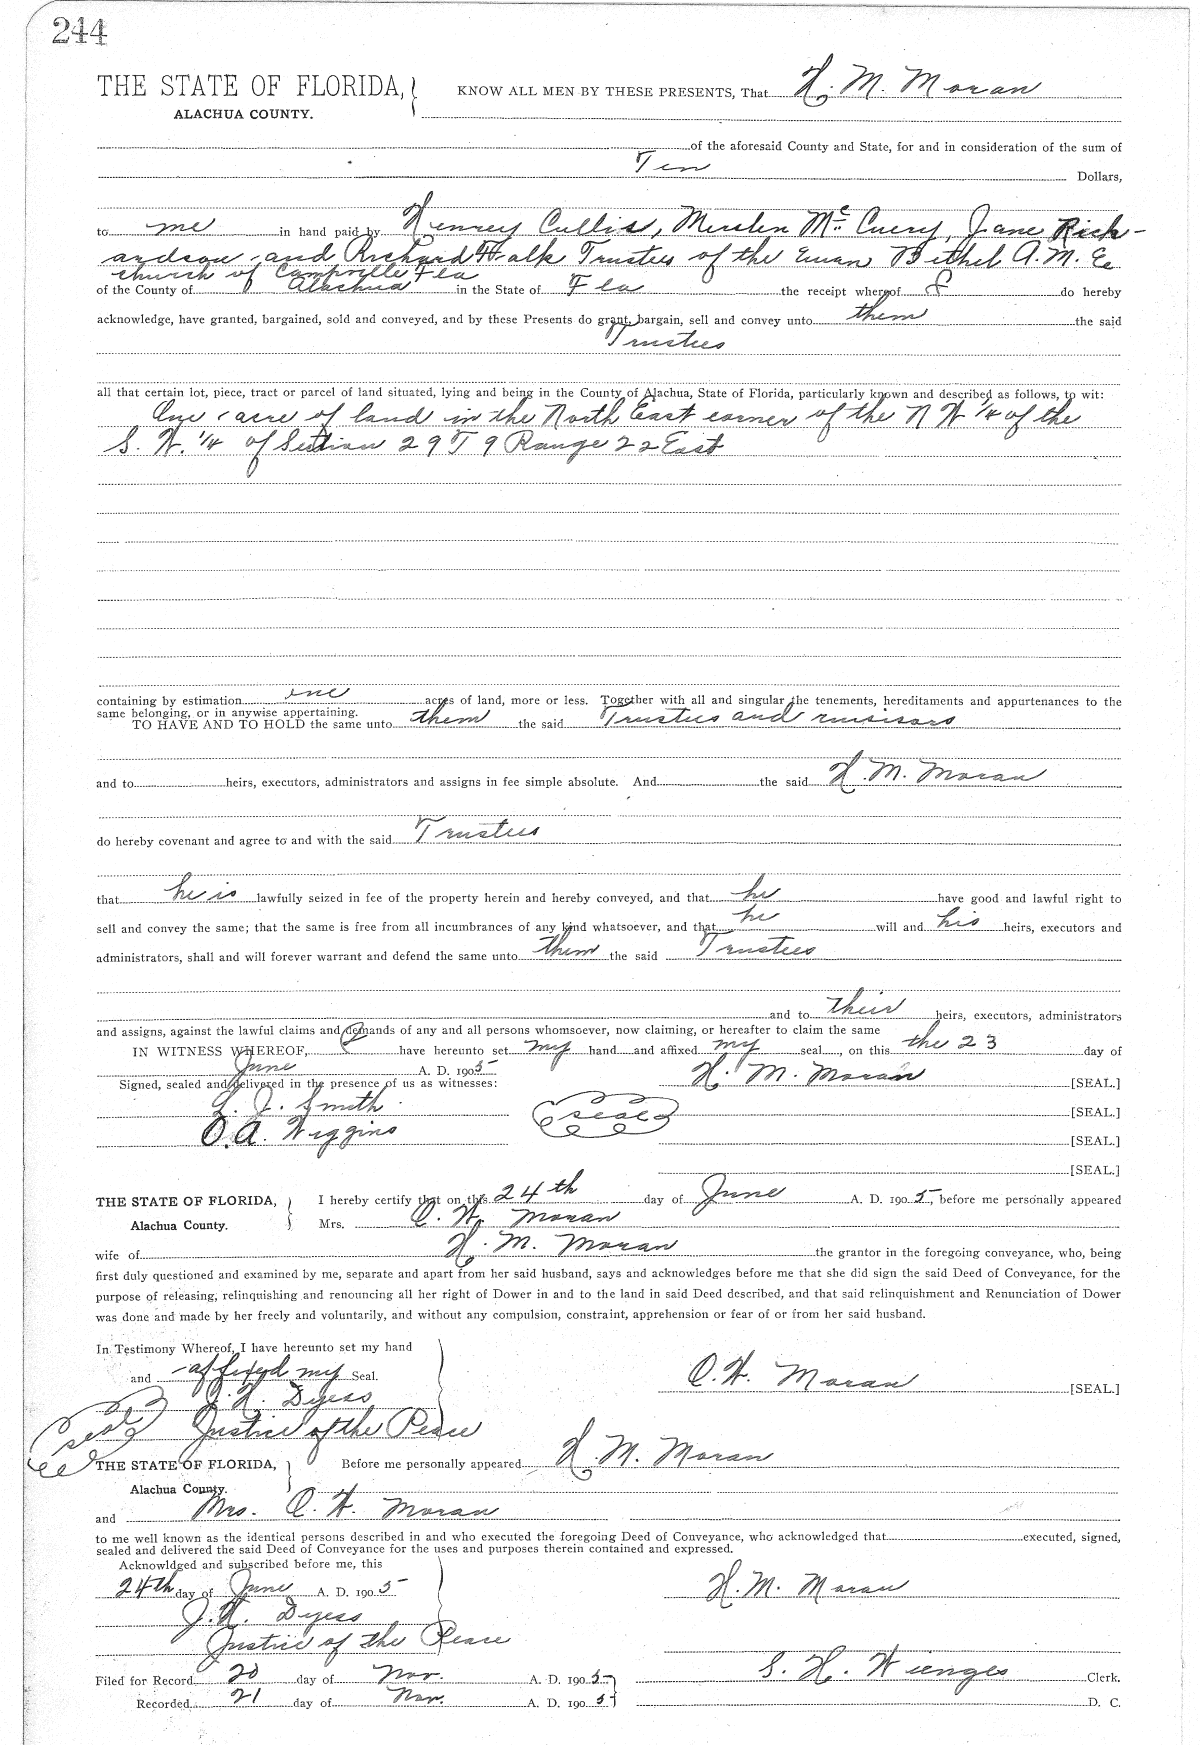 244
THE STATE OF FLORIDA, KNOW ALL MEN BY THESE PRESENTS, That H. M. Moran
ALACHUA COUNTY.
of the aforesaid County and State, for and in consideration of the sum of
Ten Dollars,
to me in hand paid by Henrey Cullis, McCuery, Jane Rich-
ardson and Richard Trustees of the Bethel A. M. Ee
church of Campville Fla
of the County of Alachua in the State of Fla the receipt whereof I do hereby
acknowledge, have granted, bargained, sold and conveyed, and by these Presents do grant, bargain, sell and convey unto them the said
Trustees
all that certain lot, piece, tract or parcel of land situated, lying and being in the County of Alachua, State of Florida, particularly known and described as follows, to wit:
One acre of land in the North East corner of the N W 1/4 of the
S. W. 1/4 of Section 29 T 9 Range 22 East
containing by estimation one acres of land, more or less. Together with all and singular the tenements, hereditaments and appurtenances to the
same belonging, or in anywise appertaining.
TO HAVE AND TO HOLD the same unto them the said Trustees and
and to heirs, executors, administrators and assigns in fee simple absolute. And the said H. M. Moran
do hereby covenant and agree to and with the said Trustees
that he is lawfully seized in fee of the property herein and hereby conveyed, and that he have good and lawful right to
sell and convey the same; that the same is free from all incumbrances of any kind whatsoever, and that he will and his heirs, executors and
administrators, shall and will forever warrant and defend the same unto them the said Trustees
and to their heirs, executors, administrators
and assigns, against the lawful claims and demands of any and all persons whomsoever, now claiming, or hereafter to claim the same
IN WITNESS WHEREOF, I have hereunto set my hand and affixed my seal, on this the 23 day of
June A. D. 1905 H. M. Moran [SEAL.]
Signed, sealed and delivered in the presence of us as witnesses:
L. J. Smith seal [SEAL.]
O. A. Wiggins [SEAL.]
[SEAL.]
THE STATE OF FLORIDA, I hereby certify that on this 24th day of June A. D. 1905, before me personally appeared
Alachua County. Mrs. O. W. Moran
wife of H. M. Moran the grantor in the foregoing conveyance, who, being
first duly questioned and examined by me, separate and apart from her said husband, says and acknowledges before me that she did sign the said Deed of Conveyance, for the
purpose of releasing, relinquishing and renouncing all her right of Dower in and to the land in said Deed described, and that said relinquishment and Renunciation of Dower
was done and made by her freely and voluntarily, and without any compulsion, constraint, apprehension or fear of or from her said husband.
In Testimony Whereof, I have hereunto set my hand
and affixed my Seal. O. W. Moran [SEAL.]
J. H. Dyess
seal Justice of the Peace
THE STATE OF FLORIDA, Before me personally appeared H. M. Moran
Alachua County.
and Mrs. O. W. Moran
to me well known as the identical persons described in and who executed the foregoing Deed of Conveyance, who acknowledged that executed, signed,
sealed and delivered the said Deed of Conveyance for the uses and purposes therein contained and expressed.
Acknowldged and subscribed before me, this
24th day of June A. D. 1905 H. M. Moran
J. H. Dyess
Justice of the Peace
Filed for Record 20 day of Nov. A. D. 1905 S. H. Wienges Clerk.
Recorded 21 day of Nov. A. D. 1905 D. C.